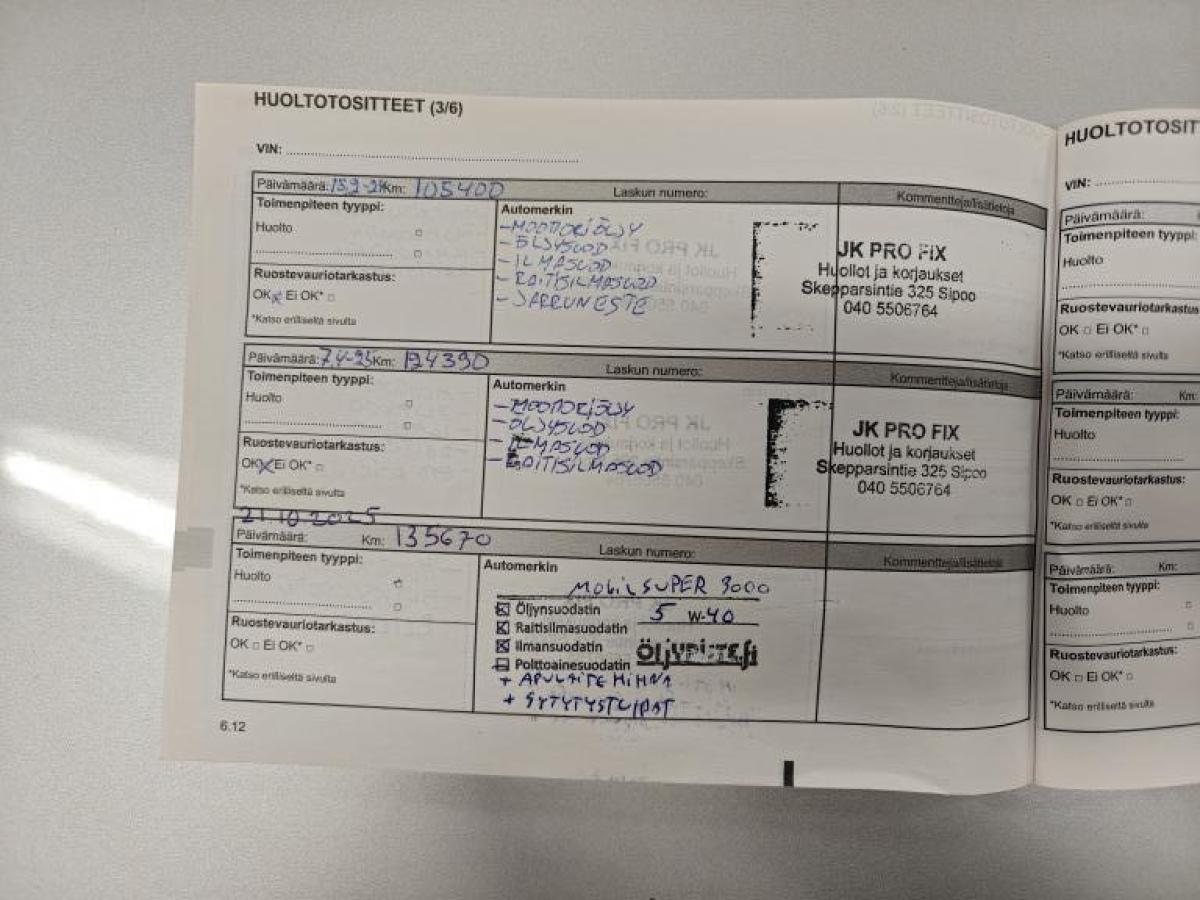 HUOLTOTOSITTEET (3/6)
VIN:
Päivämäärä: Km: 105400 Laskun numero: Kommentteja/lisätietoja
Toimenpiteen tyyppi:
Huolto
Ruostevauriotarkastus:
OK Ei OK*
*Katso erilliseltä sivulta
Automerkin
-MOOTTORIÖLJY
-ÖLJYSUOD
-ILMASUOD
-RAITISILMASUOD
-JARRUNESTE
JK PRO FIX
Huollot ja korjaukset
Skepparsintie 325 Sipoo
040 5506764
Päivämäärä: Km: 124390 Laskun numero: Kommentteja/lisätietoja
Toimenpiteen tyyppi:
Huolto
Ruostevauriotarkastus:
OK Ei OK*
*Katso erilliseltä sivulta
Automerkin
-MOOTTORIÖLJY
-ÖLJYSUOD
-ILMASUOD
-RAITISILMASUOD
JK PRO FIX
Huollot ja korjaukset
Skepparsintie 325 Sipoo
040 5506764
21.10.2025
Päivämäärä: Km: 135670 Laskun numero: Kommentteja/lisätietoja
Toimenpiteen tyyppi:
Huolto
Ruostevauriotarkastus:
OK Ei OK*
*Katso erilliseltä sivulta
Automerkin
MOBIL SUPER 3000
Öljynsuodatin 5 W-40
Raitisilmasuodatin
Ilmansuodatin Öljypiste.fi
Polttoainesuodatin
+ APULAITEHIHNA
+ SYTYTYSTULPAT
6.12
HUOLTOTOSIT
VIN:
Päivämäärä:
Toimenpiteen tyyppi:
Huolto
Ruostevauriotarkastus
OK Ei OK*
*Katso erilliseltä sivulta
Päivämäärä: Km:
Toimenpiteen tyyppi:
Huolto
Ruostevauriotarkastus:
OK Ei OK*
*Katso erilliseltä sivulta
Päivämäärä: Km:
Toimenpiteen tyyppi:
Huolto
Ruostevauriotarkastus:
OK Ei OK*
*Katso erilliseltä sivulta